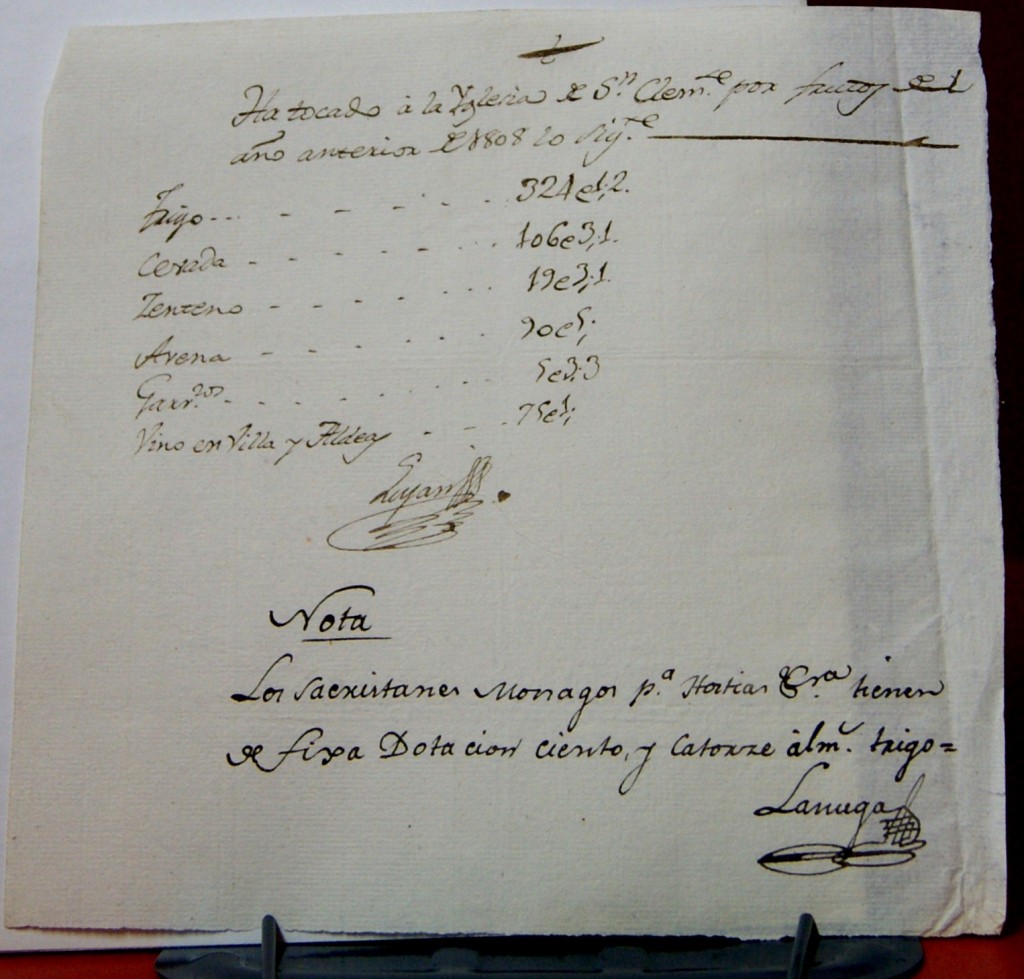 Ha tocado â la Yglesia de S.n Clem.te por frutos del
año anterior de 1808 lo sig.te
Trigo 324 e 1,,2.
Cevada 106 e 3,,1.
Zenteno 19 e 3,,1.
Avena 90 e 5,,
Garv.zos 5 e 3,,3
Vino en Villa y Aldeas 75 e 1,,
Lujan
Nota
Los Sacristanes Monagos p.a Hostias &ra tienen
de fixa Dotacion ciento, y Catorze âlm.s trigo=
Lanuga